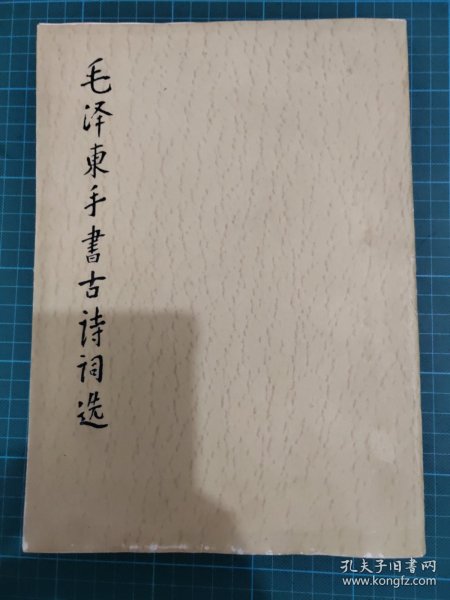 毛泽東手書古诗词选
孔夫子旧书网
www.kongfz.com